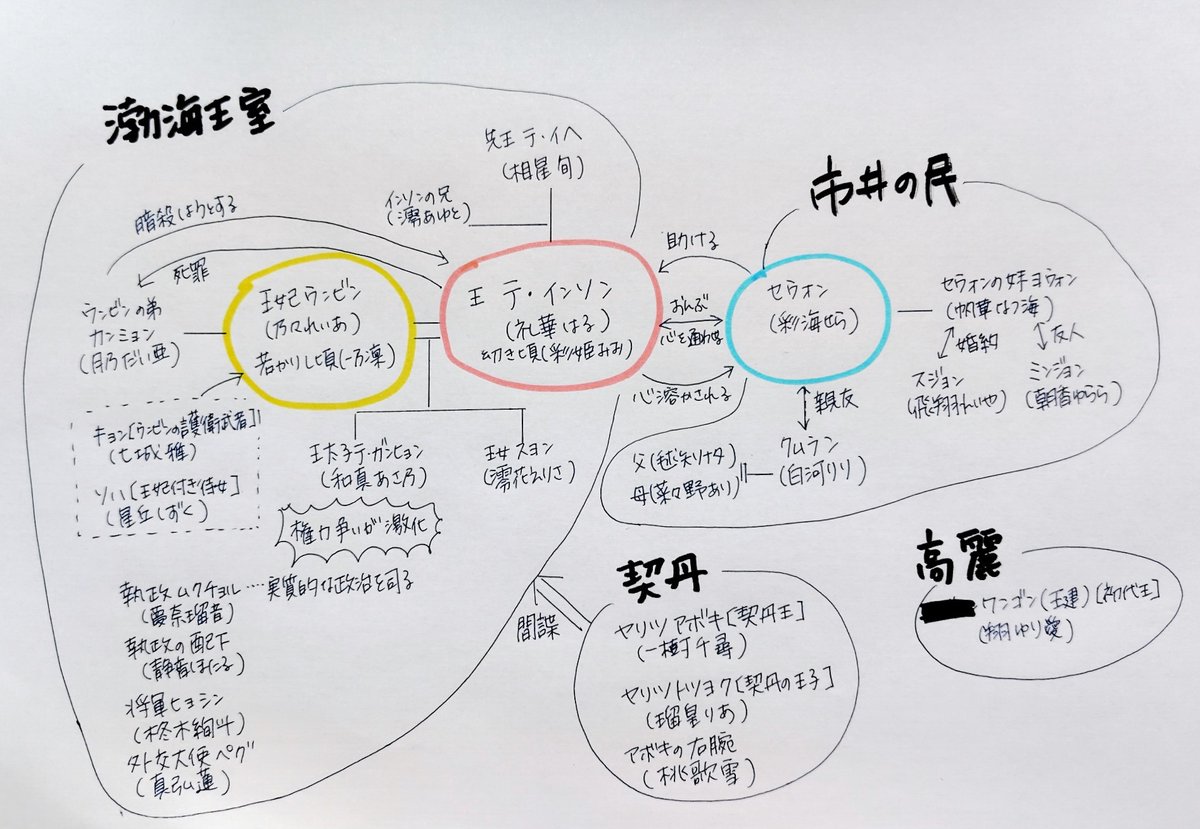 渤海王室
先王 テ・イヘ
(相星旬)
インソンの兄
(濤あゆと)
暗殺しようとする
死罪
ウンビンの弟
カンミョン
(月乃だい亜)
王妃ウンビン
(乃々れいあ)
若かりし頃(一乃凜)
王 テ・インソン
(礼華はる)
幼き頃(彩姫みみ)
キョン[ウンビンの護衛武者]
(七城雅)
ソハ[王妃付き侍女]
(星丘しずく)
王太子テ・ガンヒョン
(和真あさ乃)
権力争いが激化
王女スヨン
(澪花えりさ)
執政ムクチョル…実質的な政治を司る
(夢奈瑠音)
執政の配下
(静音ほたる)
将軍ヒョシン
(柊木絢斗)
外交大使ペグ
(真弘蓮)
市井の民
助ける
おんぶ
心を通わせ
心溶かされる
セウォン
(彩海せら)
セウォンの妹ヨウォン
(帆華なつ海)
婚約
友人
スジョン
(飛翔れいや)
ミンジョン
(朝香ゆらら)
親友
クムラン
(白河りり)
父(毬矢ソナタ)
母(菜々野あり)
契丹
間諜
ヤリツ アボキ[契丹王]
(一樹千尋)
ヤリツトツヨク[契丹の王子]
(瑠皇りあ)
アボキの右腕
(桃歌雪)
高麗
ワンゴン(王建)[初代王]
(翔ゆり愛)